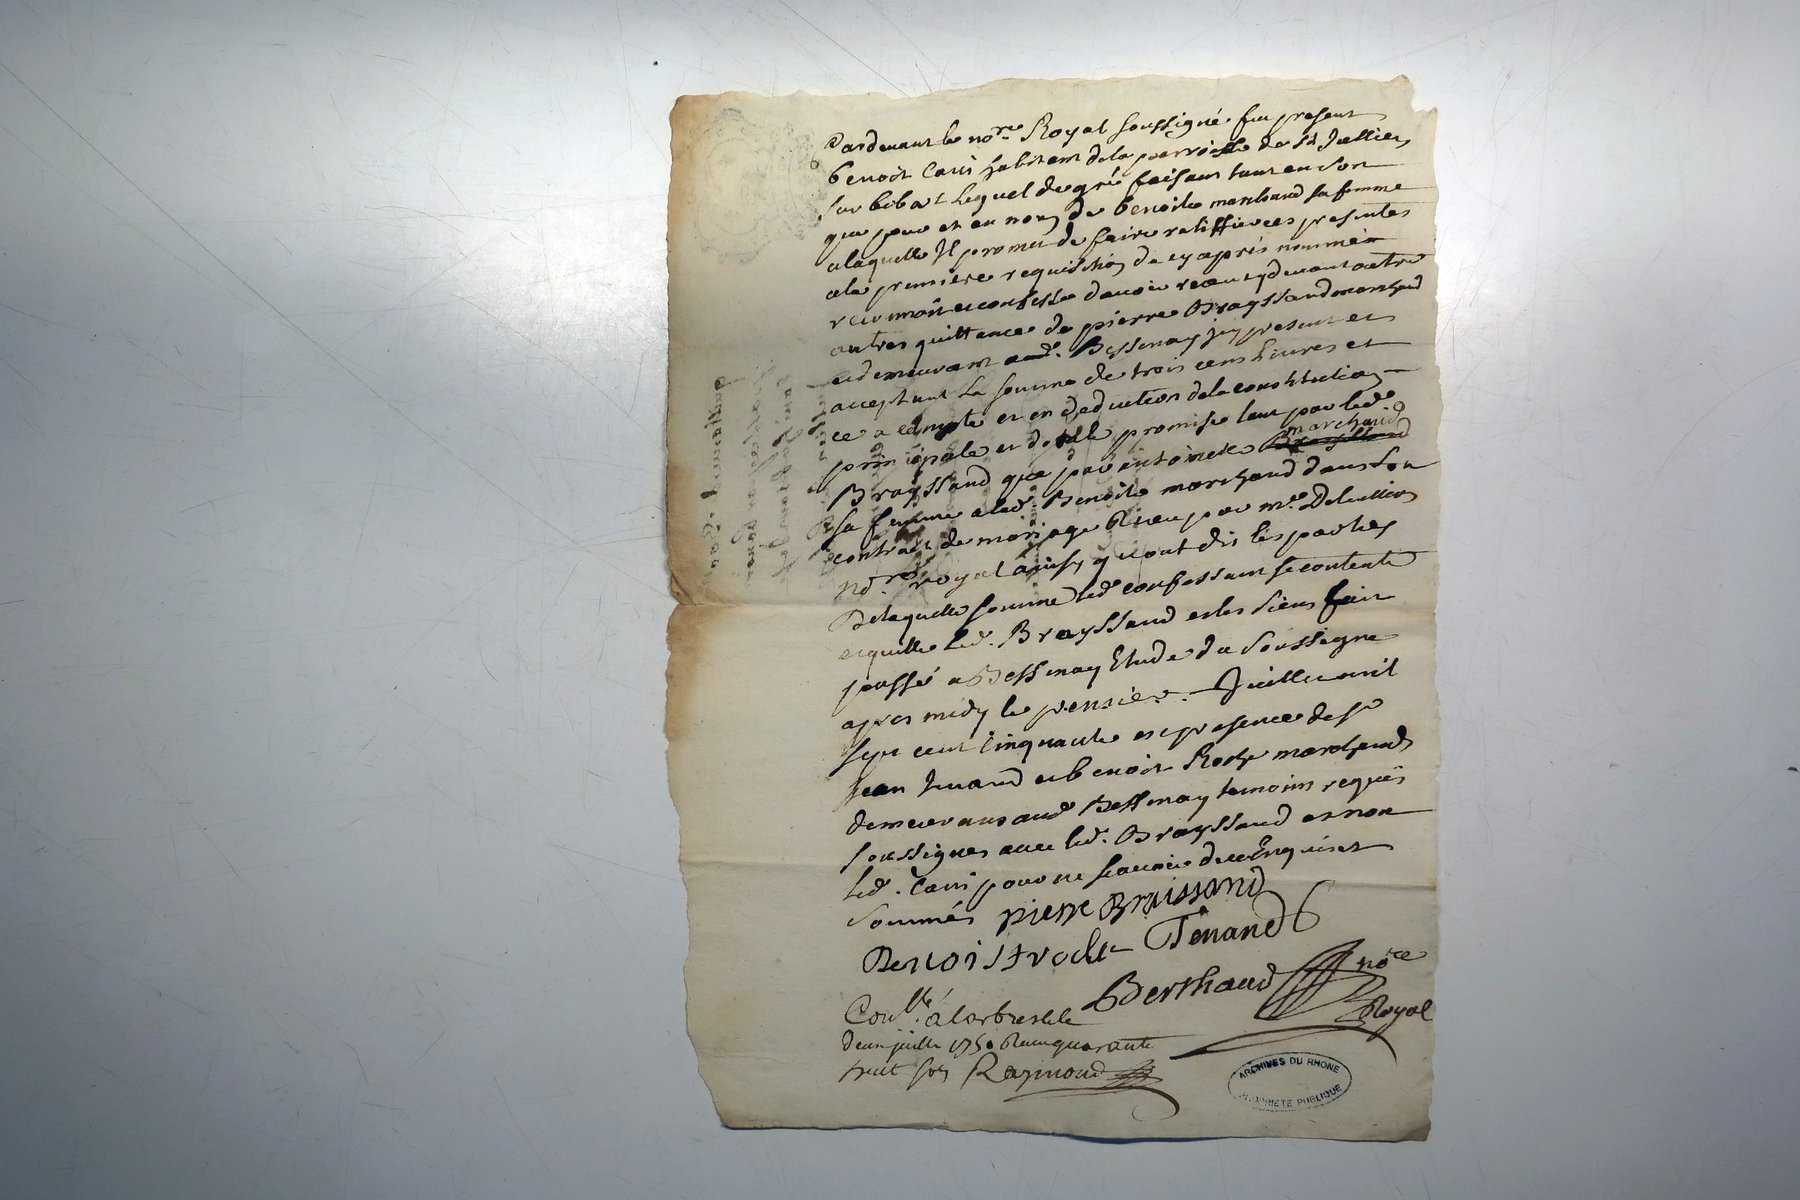 Pardevant le no.re Royal soussigné fut present
benoit Cani habitant dela parroisse de St Jullien
sur bibost lequel de gré faisant tant en son
que pour et au nom de benoite marchand sa femme
a laquelle Il promet de faire ratiffier ces presentes
ala premiere requisition de cy apres nommé
reconnoit et confesse davoir receu cydevant outre
autres quittance de pierre Brayssand marchand
et demeurant aud. Bessenay icy present et
acceptant La somme de trois cens livres et
ce a compte et en deduction dela constitution
principale et dotale promise tant par led.
Brayssand que par antoinette marchand
sa femme a lad. Benoite marchand dans son
contract de mariage Receu par me. Delacollion
no.re royal ainsy qu'ont dit les parties
De laquelle somme led. confessant se contente
et quitte led. Brayssand et les siens fait
passé a Bessenay Etude du soussigné
apres midy le premier Juillet mil
sept cent cinquante en presence de sr
Jean Tenand et benoit Roche marchands
demeurans aud. Bessenay temoins requis
soussignes avec led. Brayssand et non
led. Cani pour ne scavoir de ce Enquis et
sommés pierre Braissand
Benoist roche Tenand
Berthaud no.re
Royal
Con.llé à larbresle le
deux juillet 1750 Reçu quarante
huit sols Raymond
ARCHIVES DU RHONE
PROPRIETE PUBLIQUE